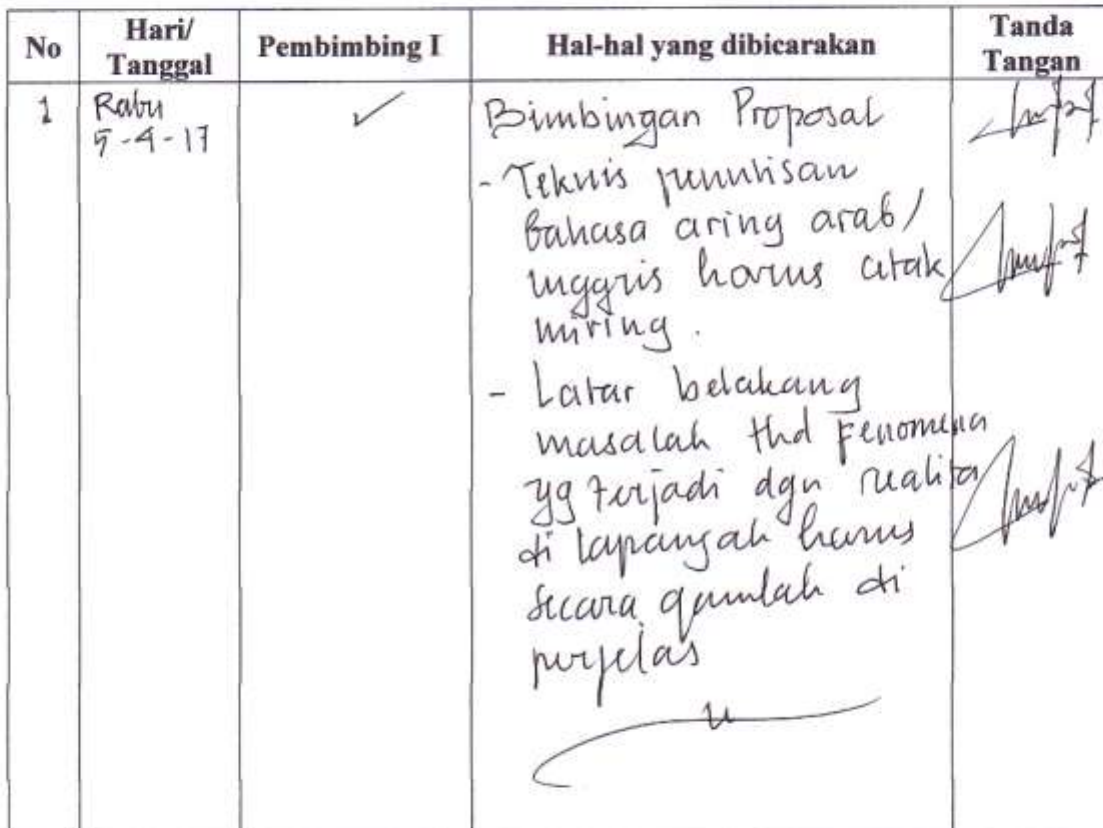 No Hari/ Tanggal Pembimbing I Hal-hal yang dibicarakan Tanda Tangan
1 Rabu ✓ Bimbingan Proposal
5-4-17
- Teknis penulisan
bahasa aring arab/
inggris harus cetak
miring.
- Latar belakang
masalah thd Fenomena
yg terjadi dgn realita
di lapangan harus
secara di
perjelas